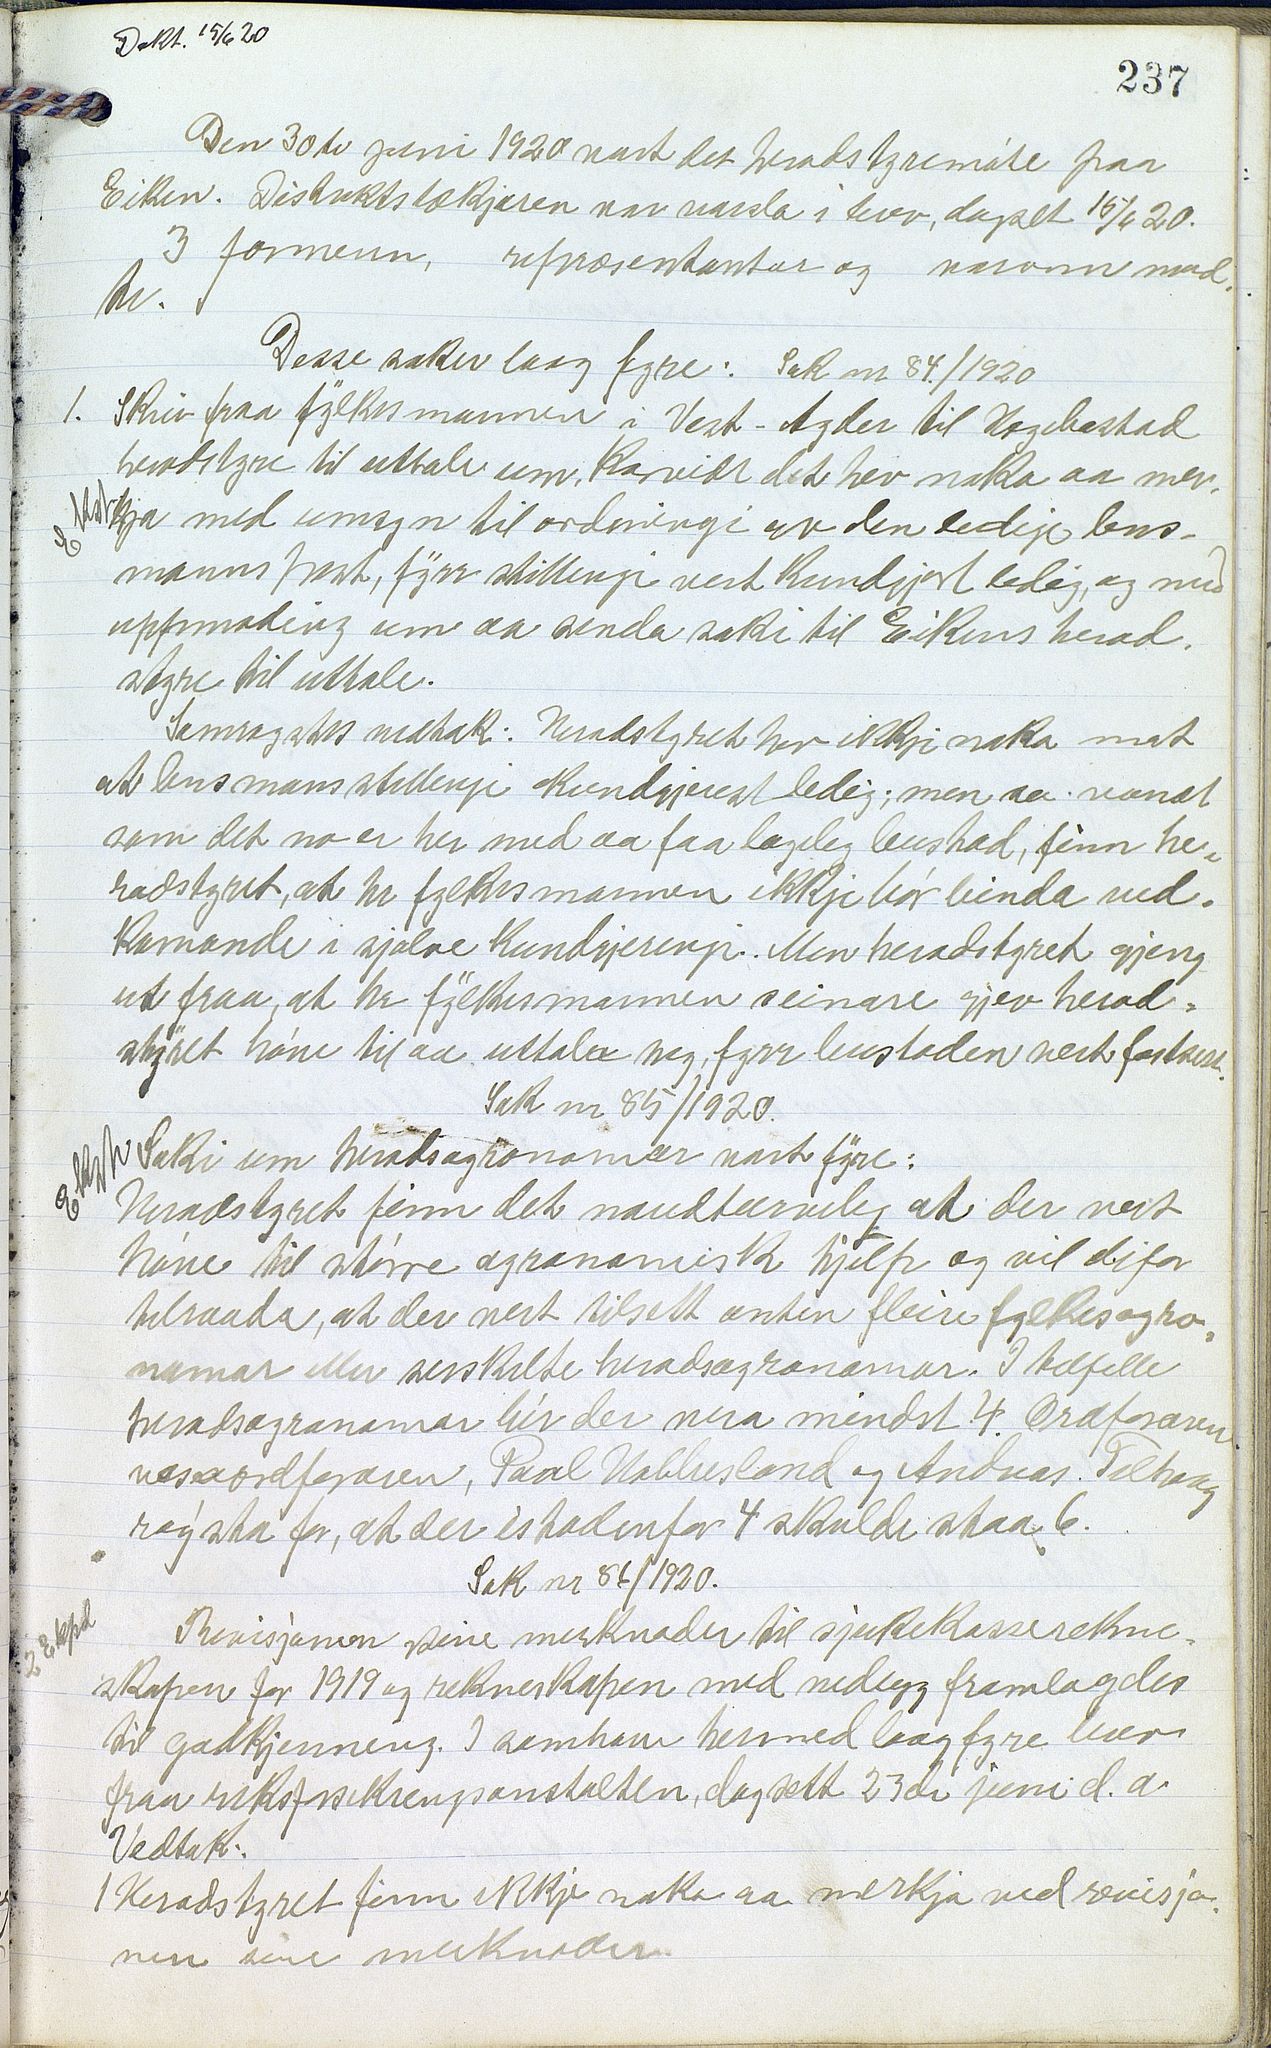 Dekt. 15/6 20
237
Den 30te juni 1920 vart det heradstyremöte paa
Eiken. Distriktslækjaren var varsla i brev, dagset 15/6 20.
3 formenn, repræsentantar og varamenn mød-
te.
Desse saker laag fyre: Sak nr 84./1920
1. Skriv fraa fylkesmannen i Vest-Agder til Hægebostad
heradstyre til uttale um, korvidt det hev noko aa mer-
kja med umsyn til ordningi av den ledige lens-
mannspost, fyrr stillingi vert kundgjort ledig, og med
uppmoding um aa senda saki til Eikens herad-
styre til uttale.
Samrøystes vedtak: Heradstyret hev ikkje noko mot
at lensmansstillingi kundgjerest ledig; men so vondt
som det no er her med aa faa lagleg bustad, finn he-
radstyret, at hr fylkesmannen ikkje bör binda ved-
komande i sjølve kundgjeringi. Men heradstyret gjeng
ut fraa, at hr fylkesmannen seinare gjev herad-
styret höve til aa uttala seg, fyrr bustaden vert fastsett.
Sak nr 85/1920.
Saki um heradsagronomar vart fyre:
Heradstyret finn det naudturvileg at der vert
höve til större agronomisk hjelp og vil difor
tilraada, at der vert tilsett anten fleire fylkesagro-
nomar eller serskilte heradsagronomar. I tilfelle
heradsagronomar bör der vera mindst 4. Ordføraren
varaordføraren, Paul Hobbesland og Andreas Telhaug
röysta for, at der istadenfor 4 skulde staa 6.
Sak nr 86/1920.
2 Eksp
Revisjonen sine merknader til sjukekasserekne-
skapen for 1919 og rekneskapen med vedlegg framlagdes
til godkjenning. I samhøve hermed laag fyre brev
fraa riksforsikringsanstalten, dagsett 23de juni d. a.
Vedtak:
1 Heradstyret finn ikkje noko aa merkja ved revisjo-
nen sine merknader